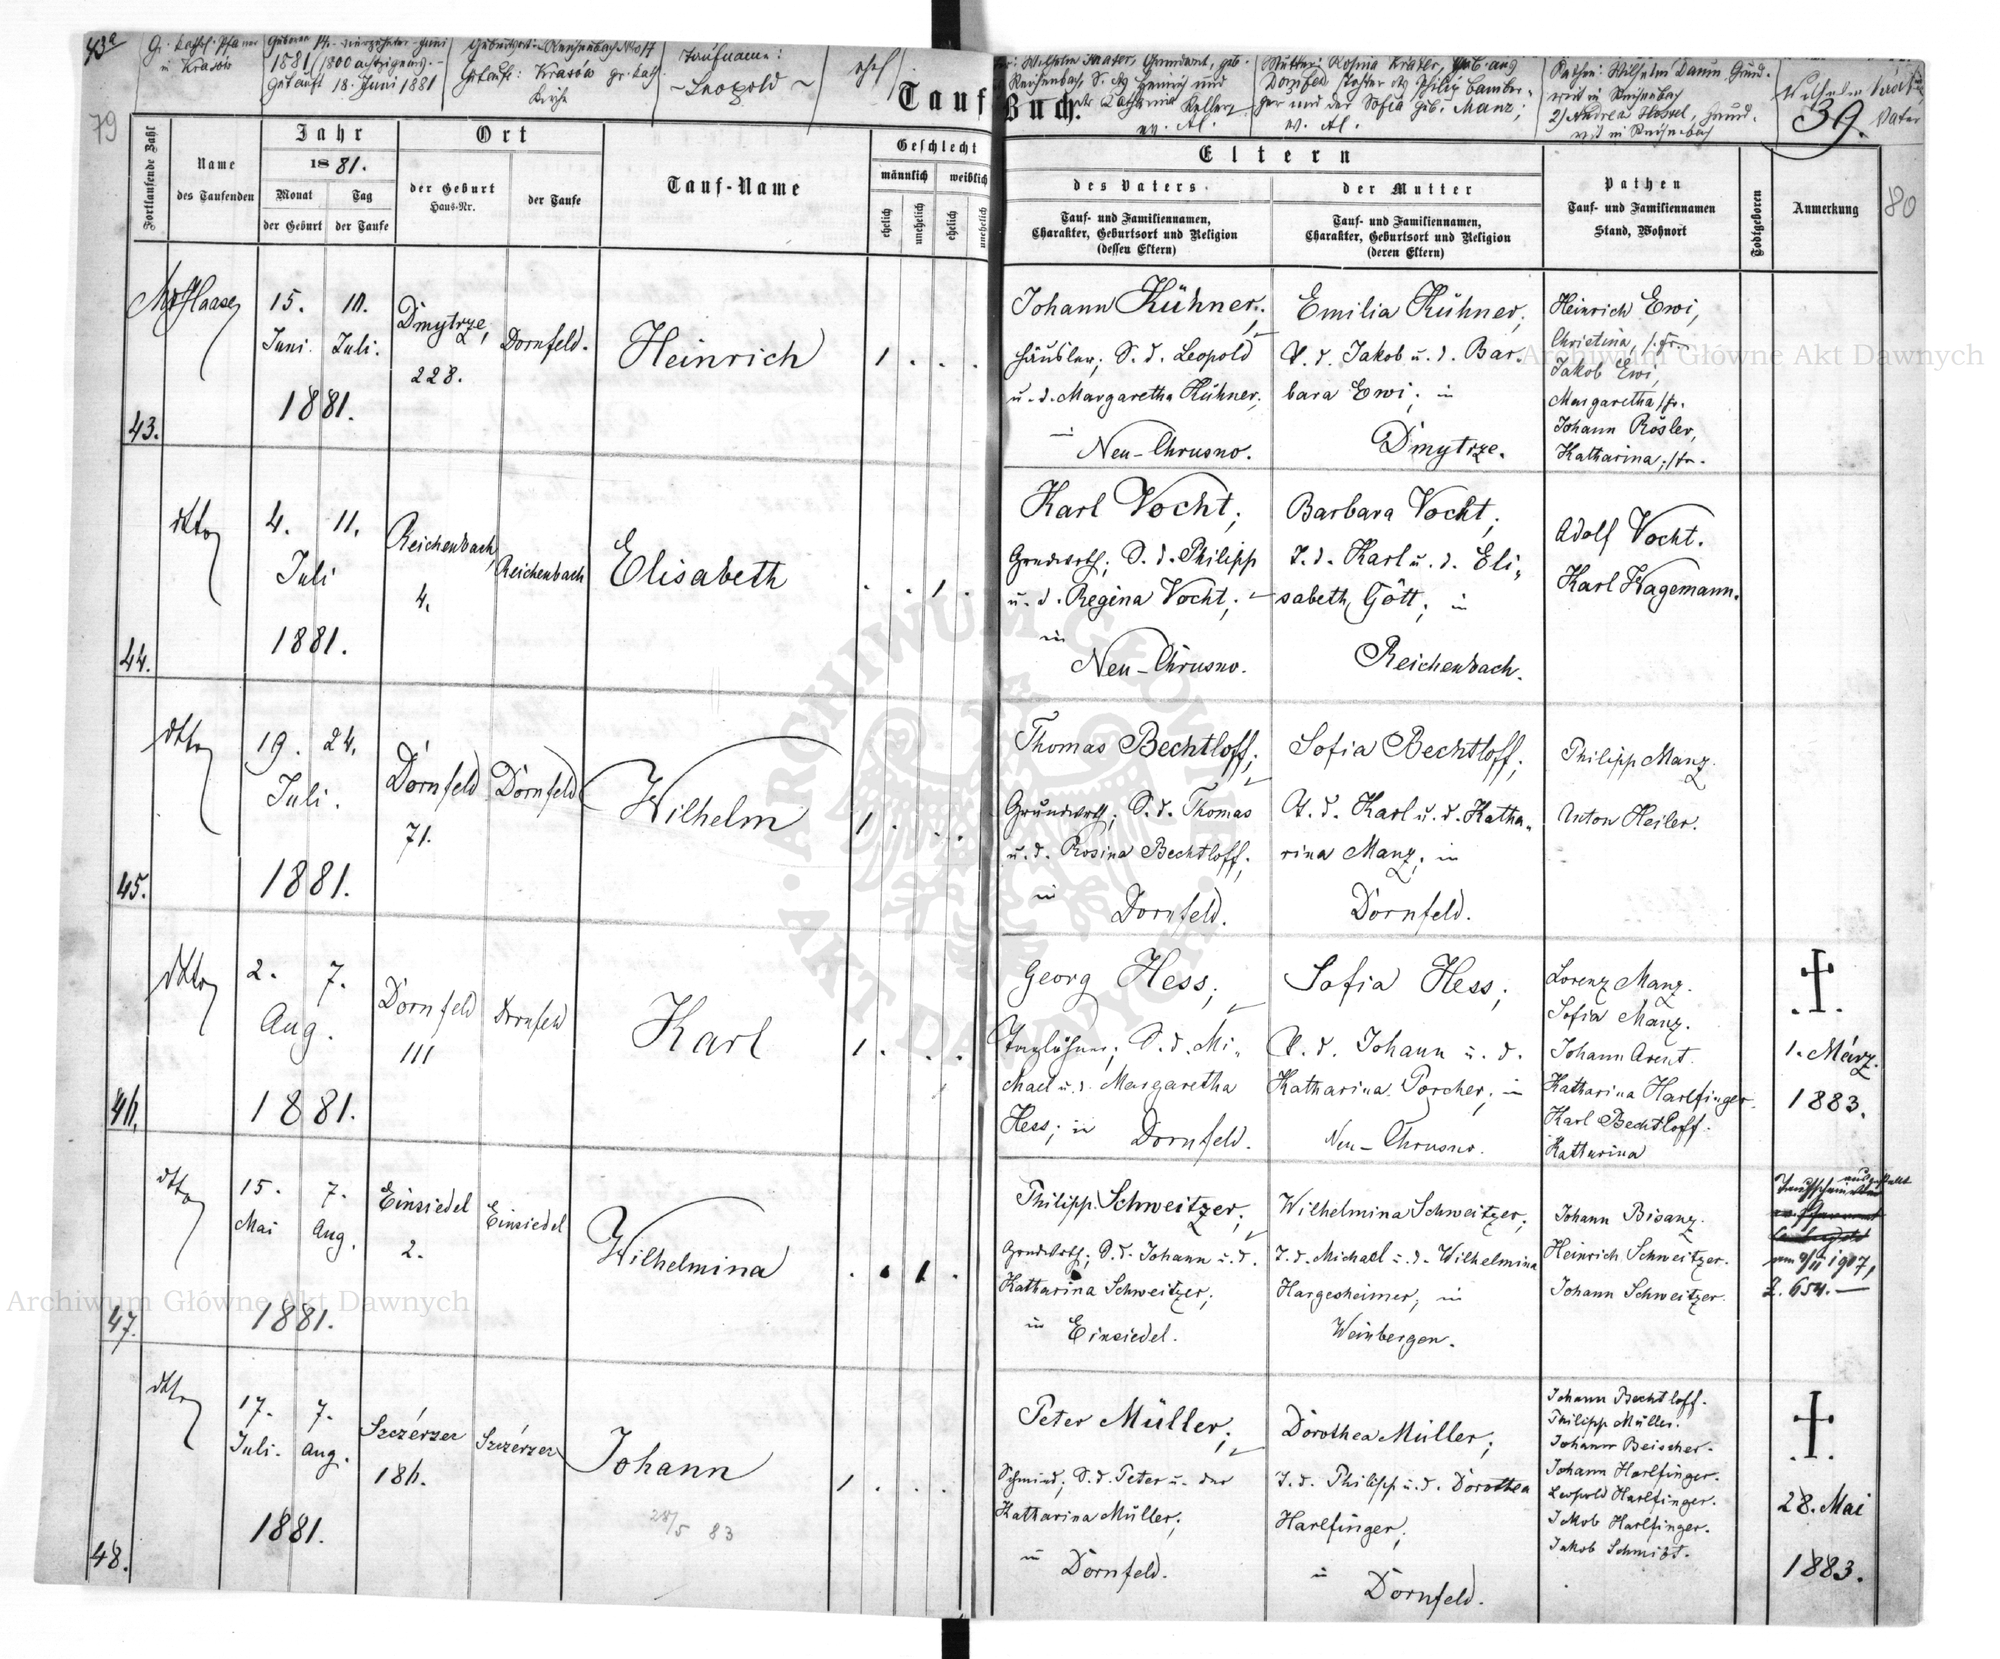 43a
Gr. kathol. Pfarrer
in Krasów
Geboren 14. vierzehnter Juni
1881 (1800 achtzigeins).-
Getauft 18. Juni 1881
Geburtsort: Reichenbach No 17
Getauft: Krasów gr. kath.
Kirche
Taufname:
~Leopold~
ehel
Vater: Wilhelm Krater, geb.
Reichenbach, S. des Heinrich und
der Katharina Keller,
ev. Al.
Mutter: Rosina Krater, geb. aus
Dornfeld Tochter des Philip Bamber-
ger und der Sofia geb. Manz;
ev. Al.
Pathen: Wilhelm Daum Grund-
wirt in Reichenbach
2) Andreas Grund-
wirt in Reichenbach
Wilhelm
Vater
39.
79
80
Tauf Buch.
Fortlaufende Zahl
Name
des Taufenden
Jahr
1881.
Monat
Tag
der Geburt
der Taufe
Ort
der Geburt
Haus-Nr.
der Taufe
Tauf-Name
Geschlecht
männlich
weiblich
ehelich
unehelich
ehelich
unehelich
Eltern
des Vaters
Tauf- und Familiennamen,
Charakter, Geburtsort und Religion
(dessen Eltern)
der Mutter
Tauf- und Familiennamen,
Charakter, Geburtsort und Religion
(deren Eltern)
Pathen
Tauf- und Familiennamen
Stand, Wohnort
Todtgeboren
Anmerkung
43.
Haase
15. 10.
Juni. Juli.
1881.
Dmytrze,
228.
Dornfeld.
Heinrich
1 . . .
Johann Kühner;
Häusler; S. d. Leopold
u. d. Margaretha Kühner;
in
Neu-Chrusno.
Emilia Kühner;
T. d. Jakob u. d. Bar-
bara Ewi; in
Dmytrze.
Heinrich Ewi,
Christina, s. Fr.
Jakob Ewi,
Margaretha s. Fr.
Johann Rösler,
Katharina; s. Fr.
44.
dtto
4. 11.
Juli
1881.
Reichenbach,
4.
Reichenbach
Elisabeth
. . 1 .
Karl Vocht;
Grundwrth; S. d. Philipp
u. d. Regina Vocht;
in
Neu-Chrusno.
Barbara Vocht;
T. d. Karl u. d. Eli-
sabeth Gött; in
Reichenbach.
Adolf Vocht.
Karl Wagemann.
45.
dtto
19. 24.
Juli.
1881.
Dornfeld
71.
Dornfeld
Wilhelm
1 . . .
Thomas Bechtloff;
Grundwrth; S. d. Thomas
u. d. Rosina Bechtloff;
in
Dornfeld.
Sofia Bechtloff;
T. d. Karl u. d. Katha-
rina Manz; in
Dornfeld.
Philipp Manz.
Anton Heiler.
46.
dtto
2. 7.
Aug.
1881.
Dornfeld
111
Dornfeld
Karl
1 . . .
Georg Hess;
Taglöhner; S. d. Mi-
chael u. d. Margaretha
Hess; in Dornfeld.
Sofia Hess;
T. d. Johann u. d.
Katharina Porcher; in
Neu-Chrusno.
Lorenz Manz.
Sofia Manz.
Johann Arent.
Katharina Harlfinger.
Karl Bechtloff.
Katharina
†
1. März
1883.
47.
dtto
15. 7.
Mai Aug.
1881.
Einsiedel
2.
Einsiedel
Wilhelmina
. . 1 .
Philipp Schweitzer;
Grundwrth; S. d. Johann u. d.
Katharina Schweitzer;
in Einsiedel.
Wilhelmina Schweitzer;
T. d. Michael u. d. Wilhelmina
Hargesheimer; in
Weinbergen.
Johann Bisanz.
Heinrich Schweitzer.
Johann Schweitzer.
Taufschein ausgestellt
1907,
Z. 654.-
48.
dtto
17. 7.
Juli. Aug.
1881.
Szczérzer
186.
Szczérzer
Johann
28/5 83
1 . . .
Peter Müller;
Schmied; S. d. Peter u. der
Katharina Müller;
in
Dornfeld.
Dorothea Müller;
T. d. Philipp u. d. Dorothea
Harlfinger;
in
Dornfeld.
Johann Bechtloff.
Philipp Müller.
Johann Beischer.
Johann Harlfinger.
Leopold Harlfinger.
Jakob Harlfinger.
Jakob Schmidt.
†
28. Mai
1883.
Archiwum Główne Akt Dawnych
Archiwum Główne Akt Dawnych
ARCHIWUM GŁÓWNE
AKT DAWNYCH